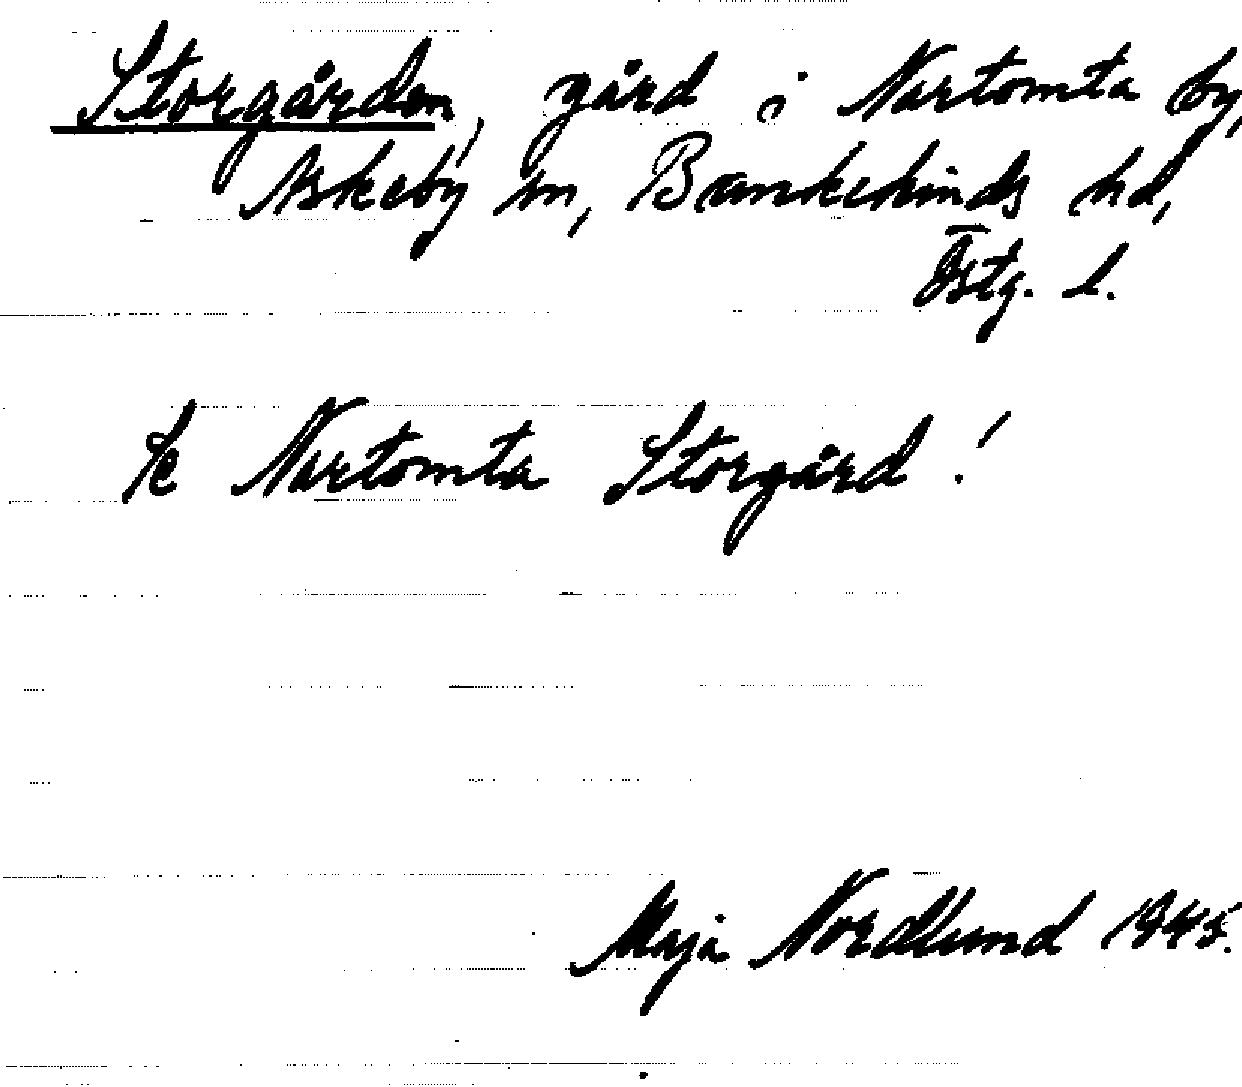 Storgården, gård i Nartomta by,
Askeby sn, Bankekinds hd,
Östg. l.
Se Nartomta Storgård!
Maja Nordlund 1945.